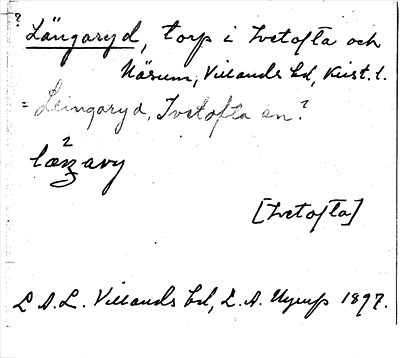 ? Längaryd, torp i Ivetofta och
Näsum, Villands hd, Krist. l.
= Leingaryd, Ivetofta sn?
[Ivetofta]
L A.L. Villands hd, L.A. Nyrup 1897.